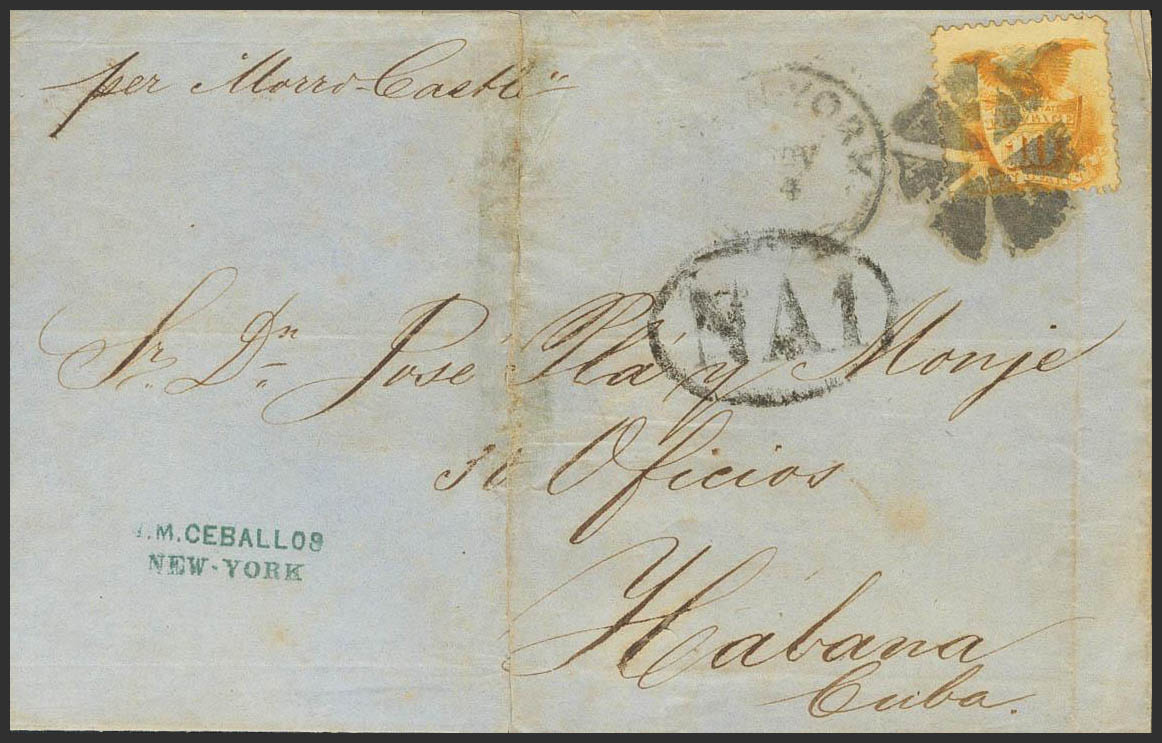 per Morro-Castle
YORK
NOV
4
10
NA1
Sr. Dn. José Plá y Monje
Oficios
Habana
Cuba.
M. CEBALLOS
NEW-YORK